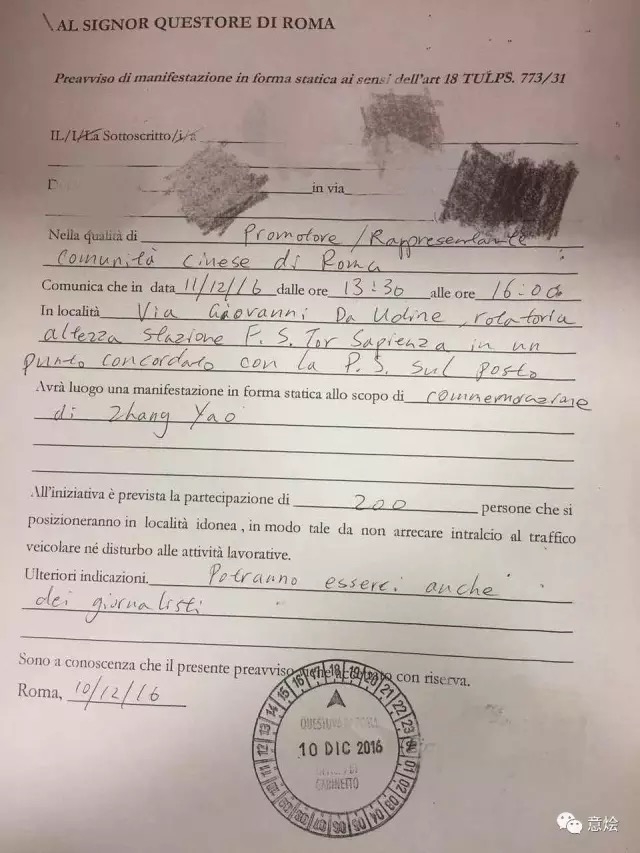 AL SIGNOR QUESTORE DI ROMA
Preavviso di manifestazione in forma statica ai sensi dell'art 18 TULPS. 773/31
IL/I/La Sottoscritto/i/a
in via
Nella qualità di Promotore/Rappresentante
comunità cinese di Roma
Comunica che in data 11/12/16 dalle ore 13:30 alle ore 16:00
In località Via Giovanni Da Udine, rotatoria
altezza stazione F.S. Tor Sapienza in un
punto concordato con la P.S. sul posto
Avrà luogo una manifestazione in forma statica allo scopo di commemorazione
di Zhang Yao
All'iniziativa è prevista la partecipazione di 200 persone che si
posizioneranno in località idonea , in modo tale da non arrecare intralcio al traffico
veicolare né disturbo alle attività lavorative.
Ulteriori indicazioni. Potranno esserci anche
dei giornalisti
Sono a conoscenza che il presente preavviso viene accettato con riserva.
Roma, 10/12/16
13 14 15 16 17 18 19 20 21 22 23
QUESTURA DI ROMA
10 DIC 2016
GABINETTO
意烩